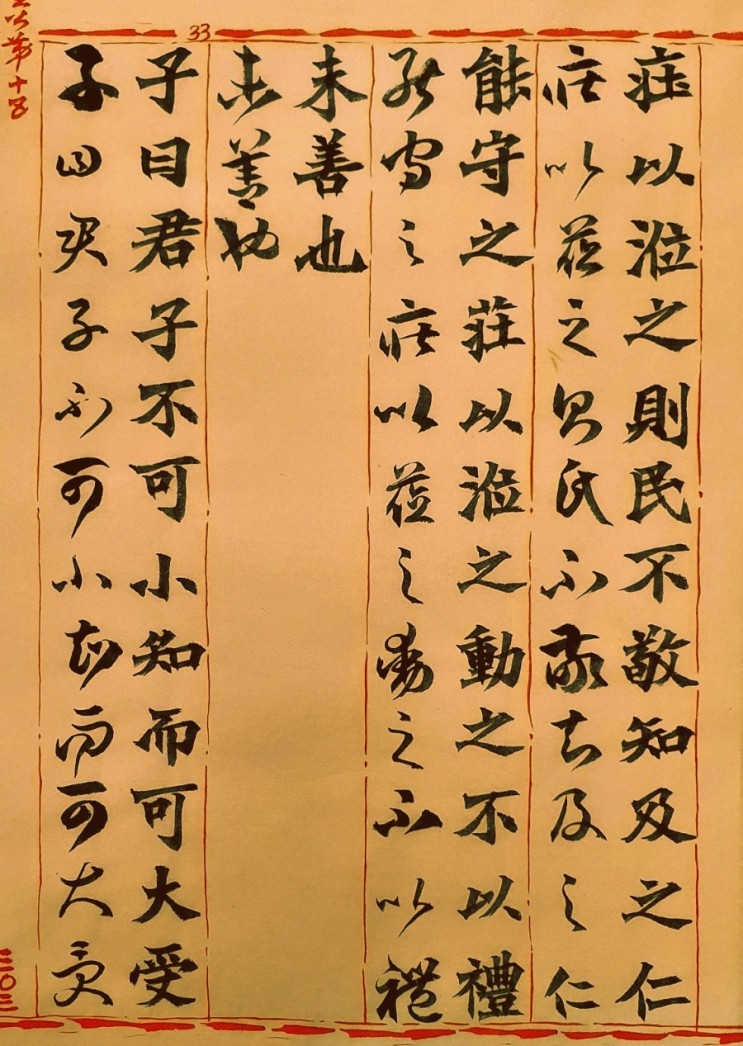 33
莊以涖之則民不敬知及之仁
莊以蒞之則民不敬知及之仁
能守之莊以涖之動之不以禮
能守之莊以蒞之動之不以禮
未善也
未善也
子曰君子不可小知而可大受
子曰君子不可小知而可大受
第十五
三〇三